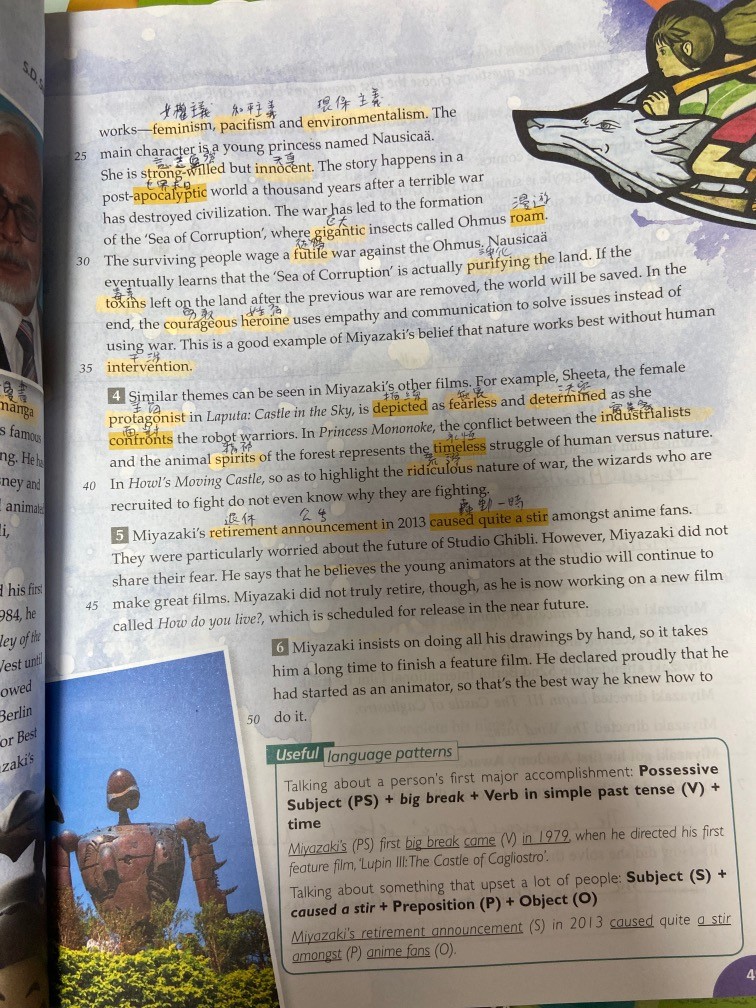 S.D.
女權主義 和平主義 環保主義
works—feminism, pacifism and environmentalism. The
25 main character is a young princess named Nausicaä.
意志堅強 天真
She is strong-willed but innocent. The story happens in a
世界末日
post-apocalyptic world a thousand years after a terrible war
has destroyed civilization. The war has led to the formation
巨大 漫遊
of the ‘Sea of Corruption’, where gigantic insects called Ohmus roam.
30 The surviving people wage a futile war against the Ohmus. Nausicaä
淨化
eventually learns that the ‘Sea of Corruption’ is actually purifying the land. If the
毒素
toxins left on the land after the previous war are removed, the world will be saved. In the
勇敢
end, the courageous heroine uses empathy and communication to solve issues instead of
using war. This is a good example of Miyazaki’s belief that nature works best without human
干涉
35 intervention.
4 Similar themes can be seen in Miyazaki’s other films. For example, Sheeta, the female
主角 無畏 決定
protagonist in Laputa: Castle in the Sky, is depicted as fearless and determined as she
面對
confronts the robot warriors. In Princess Mononoke, the conflict between the industrialists
精神
and the animal spirits of the forest represents the timeless struggle of human versus nature.
40 In Howl’s Moving Castle, so as to highlight the ridiculous nature of war, the wizards who are
recruited to fight do not even know why they are fighting.
退休 公告 轟動一時
5 Miyazaki’s retirement announcement in 2013 caused quite a stir amongst anime fans.
They were particularly worried about the future of Studio Ghibli. However, Miyazaki did not
share their fear. He says that he believes the young animators at the studio will continue to
45 make great films. Miyazaki did not truly retire, though, as he is now working on a new film
called How do you live?, which is scheduled for release in the near future.
6 Miyazaki insists on doing all his drawings by hand, so it takes
him a long time to finish a feature film. He declared proudly that he
had started as an animator, so that’s the best way he knew how to
50 do it.
Useful language patterns
Talking about a person’s first major accomplishment: Possessive
Subject (PS) + big break + Verb in simple past tense (V) +
time
Miyazaki’s (PS) first big break came (V) in 1979, when he directed his first
feature film, ‘Lupin III: The Castle of Cagliostro’.
Talking about something that upset a lot of people: Subject (S) +
caused a stir + Preposition (P) + Object (O)
Miyazaki’s retirement announcement (S) in 2013 caused quite a stir
amongst (P) anime fans (O).
manga
famous
ney and
his first
984, he
ley of the
owed
Berlin
or Best
zaki’s
4